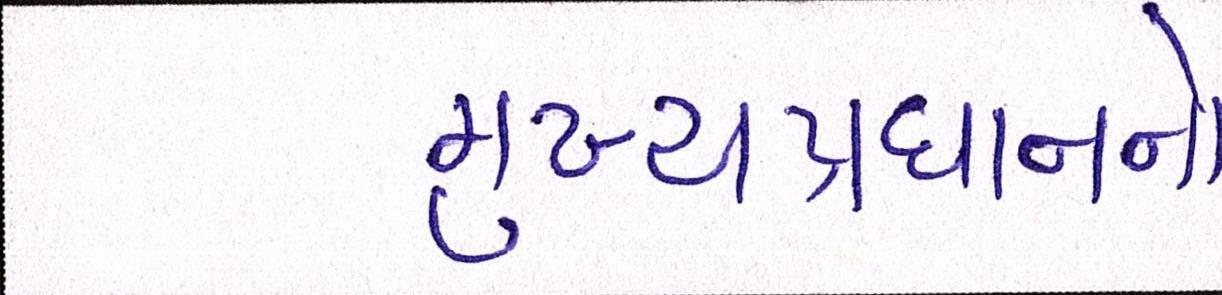 મુખ્યપ્રધાનનો